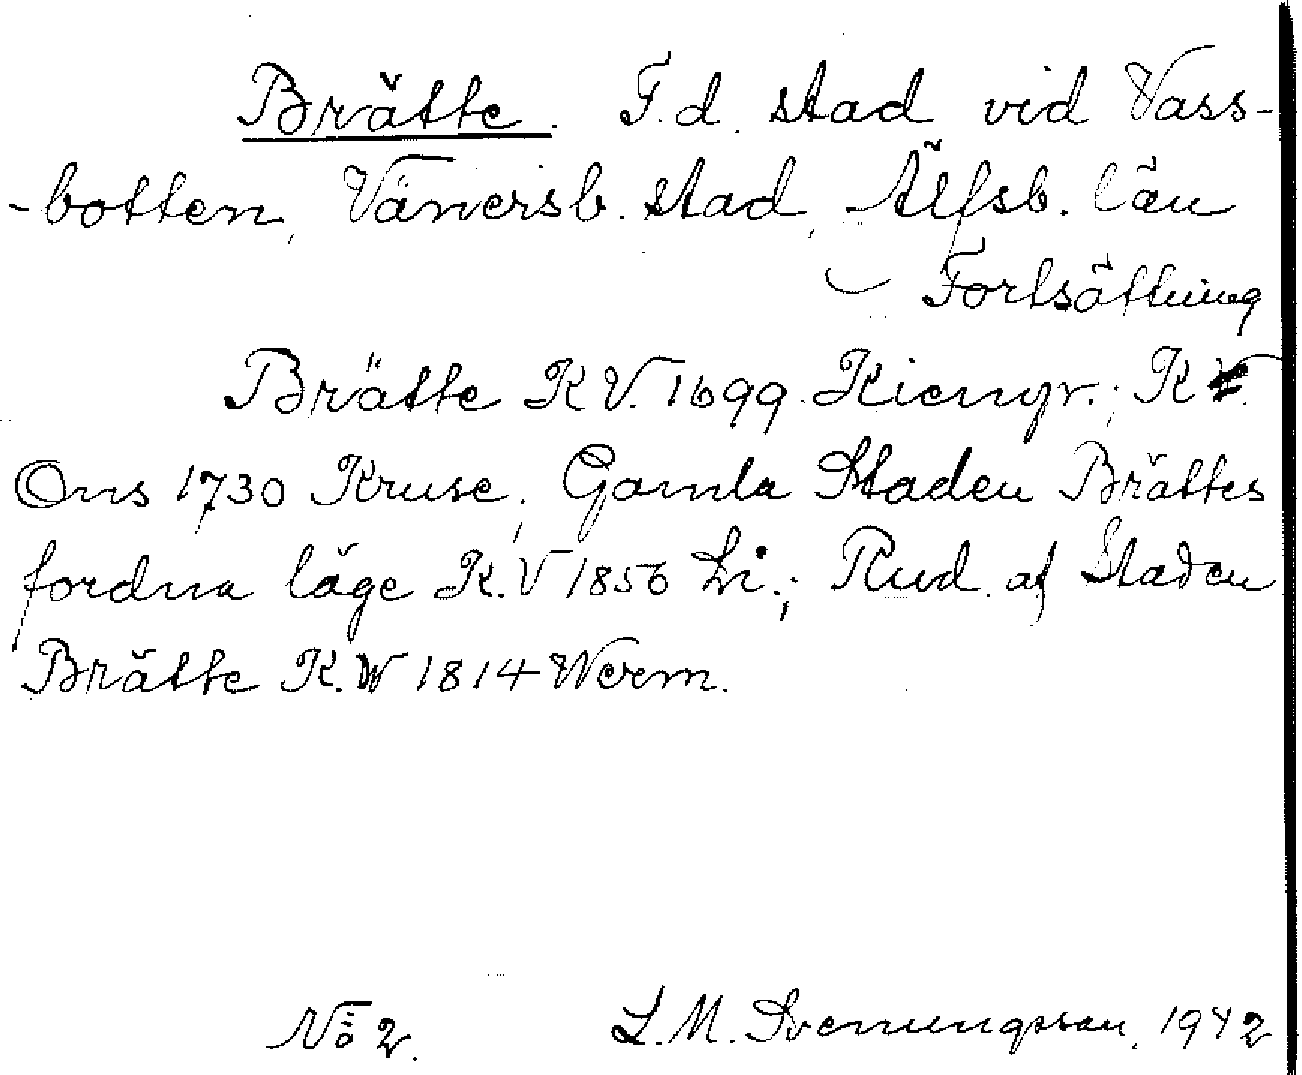 Brätte. F.d. stad vid Vass-
-botten, Vänersb. stad, Älfsb. län
Fortsättning
Brätte K V. 1699 Kiengr.; K V.
Ons 1730 Kruse; Gamla Staden Brättes
fordna läge K. V 1856 Li.; Rud. af Staden
Brätte K. W 1814 Werm.
No 2. L. M. Svenungsson. 1942